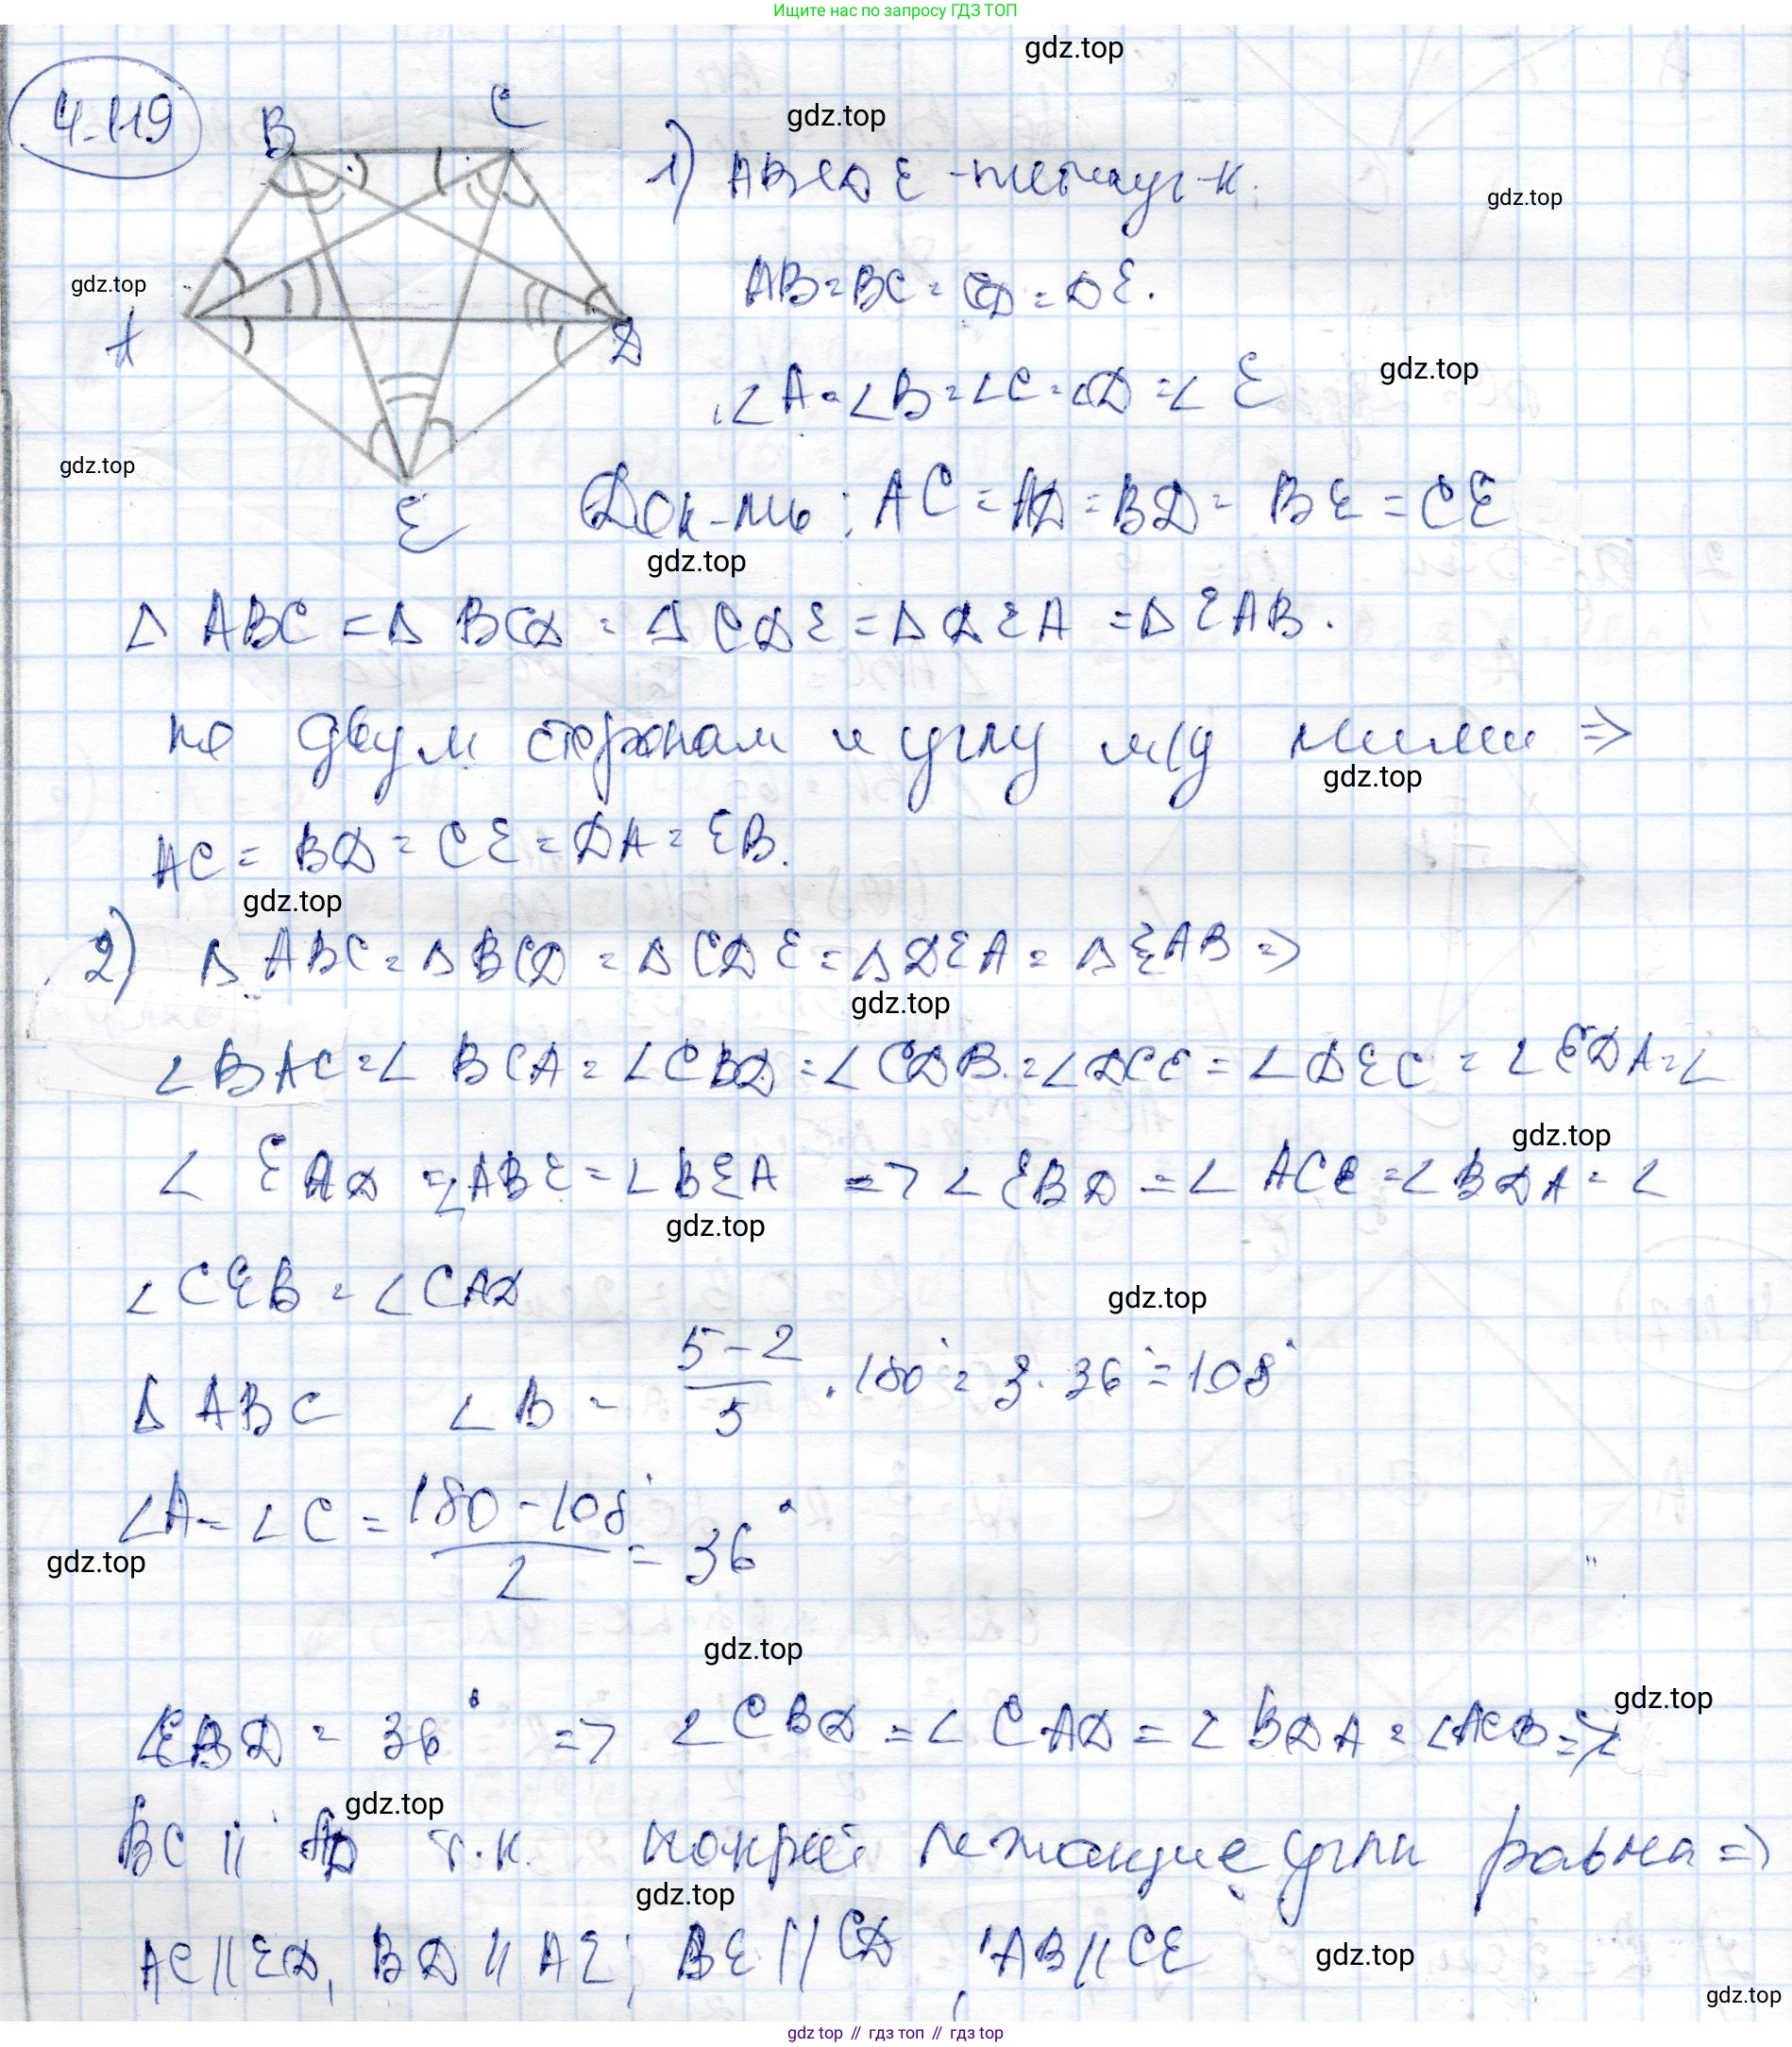 Ищите нас по запросу ГДЗ ТОП
gdz.top
4.119
B
C
gdz.top
1) ABCDE - пятиуг-к.
gdz.top
AB = BC = CD = DE.
gdz.top
A
D
∠A = ∠B = ∠C = ∠D = ∠E
gdz.top
gdz.top
E
Док-ть: AC = AD = BD = BE = CE
gdz.top
Δ ABC = Δ BCD = Δ CDE = Δ DEA = Δ EAB.
по двум сторонам и углу м/у ними ⇒
gdz.top
AC = BD = CE = DA = EB.
gdz.top
2) Δ ABC = Δ BCD = Δ CDE = Δ DEA = Δ EAB ⇒
gdz.top
∠BAC = ∠ BCA = ∠CBD = ∠CDB = ∠DCE = ∠DEC = ∠EDA = ∠
gdz.top
∠ EAD = ∠ABE = ∠BEA => ∠EBD = ∠ ACE = ∠BDA = ∠
gdz.top
∠CEB = ∠CAD
gdz.top
Δ ABC ∠B = 5-2/5 · 180° = 3 · 36° = 108°
∠A = ∠C = 180-108°/2 = 36°
gdz.top
gdz.top
gdz.top
∠EBD = 36° => ∠CBD = ∠CAD = ∠BDA = ∠ACB =>
gdz.top
BC || AD т.к. лежащие углы равна =>
gdz.top
AC || ED, BD || AE, BE || CD, AB || CE
gdz.top
gdz.top
gdz top // гдз топ // gdz top